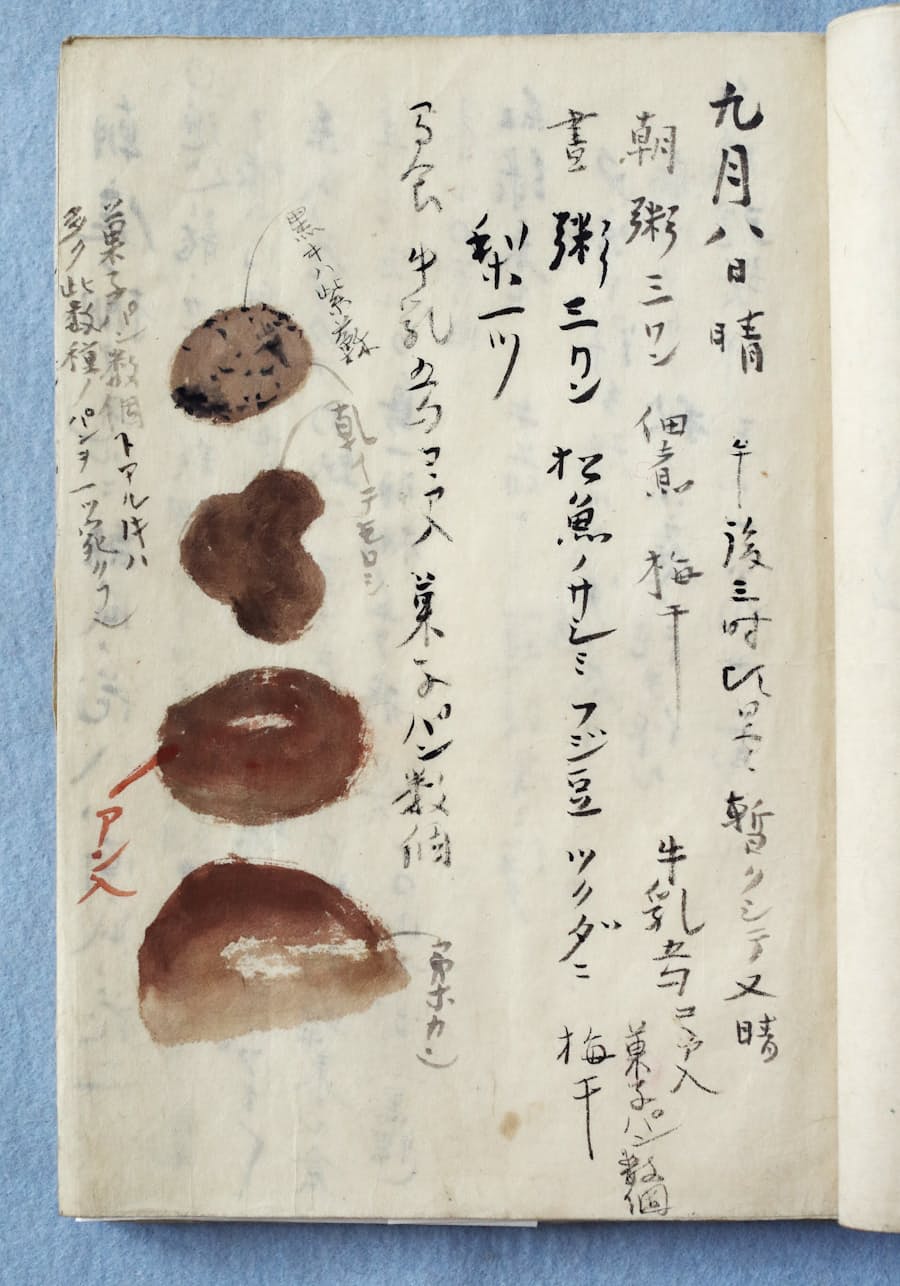 九月八日 晴 午後三時頃曇 暫クシテ又晴
朝 粥三ワン 佃煮 梅干
牛乳五勺ココア入
菓子パン数個
晝 粥三ワン 松魚ノサシミ フジ豆 ツクダニ 梅干
梨一ツ
間食 牛乳五勺ココア入 菓子パン数個
黒キハ紫蘇
乾イテモロシ
アン入
柔カ
菓子パン数個トアルトキハ
多ク此数種ノパンヲ一ツ宛クフ